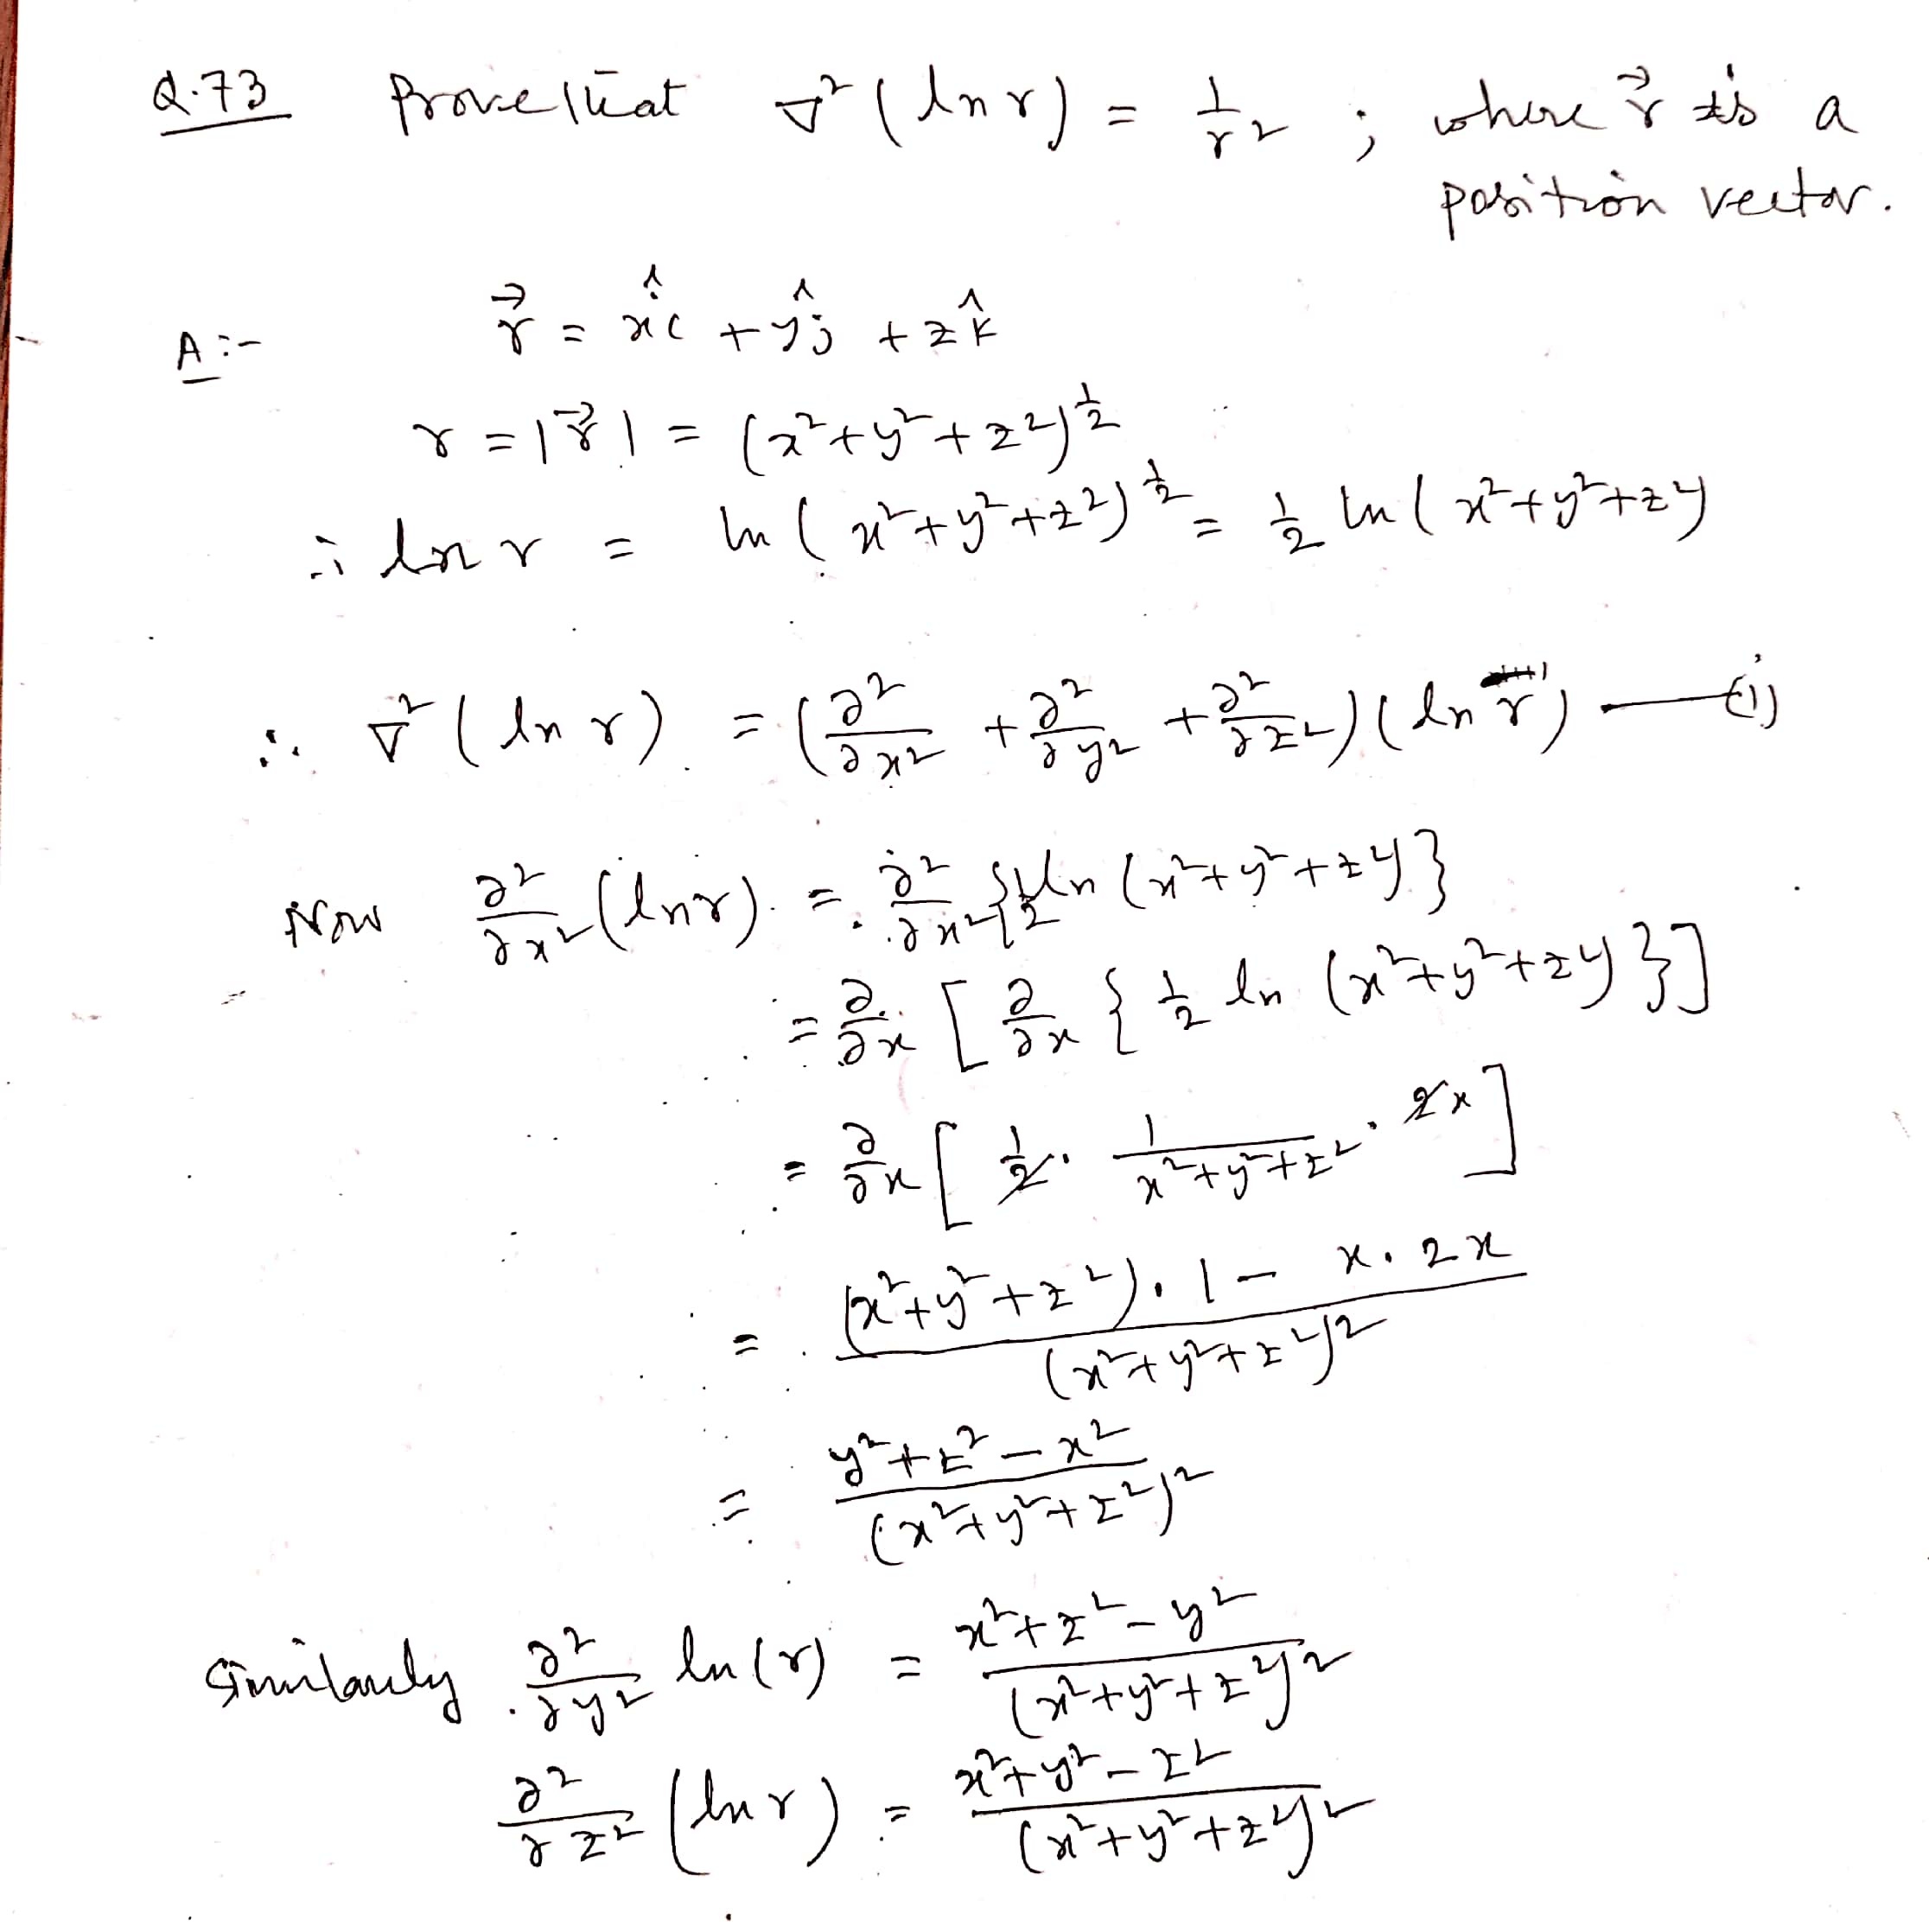 Q.73 Prove that ∇² (ln r) = 1/r² ; where r⃗ is a
position vector.
A:- r⃗ = xî + yĵ + zk̂
r = |r⃗| = (x²+y²+z²)^½
∴ ln r = ln (x²+y²+z²)^½ = ½ ln (x²+y²+z²)
∴ ∇² (ln r) = (∂²/∂x² + ∂²/∂y² + ∂²/∂z²) (ln r) —(1)
Now ∂²/∂x² (ln r) = ∂²/∂x² {½ ln (x²+y²+z²)}
= ∂/∂x [ ∂/∂x { ½ ln (x²+y²+z²) } ]
= ∂/∂x [ 1/2 · 1/(x²+y²+z²) · 2x ]
= ((x²+y²+z²)·1 − x·2x)/(x²+y²+z²)²
= (y²+z²−x²)/(x²+y²+z²)²
Similarly ∂²/∂y² ln(r) = (x²+z²−y²)/(x²+y²+z²)²
∂²/∂z² (ln r) = (x²+y²−z²)/(x²+y²+z²)²